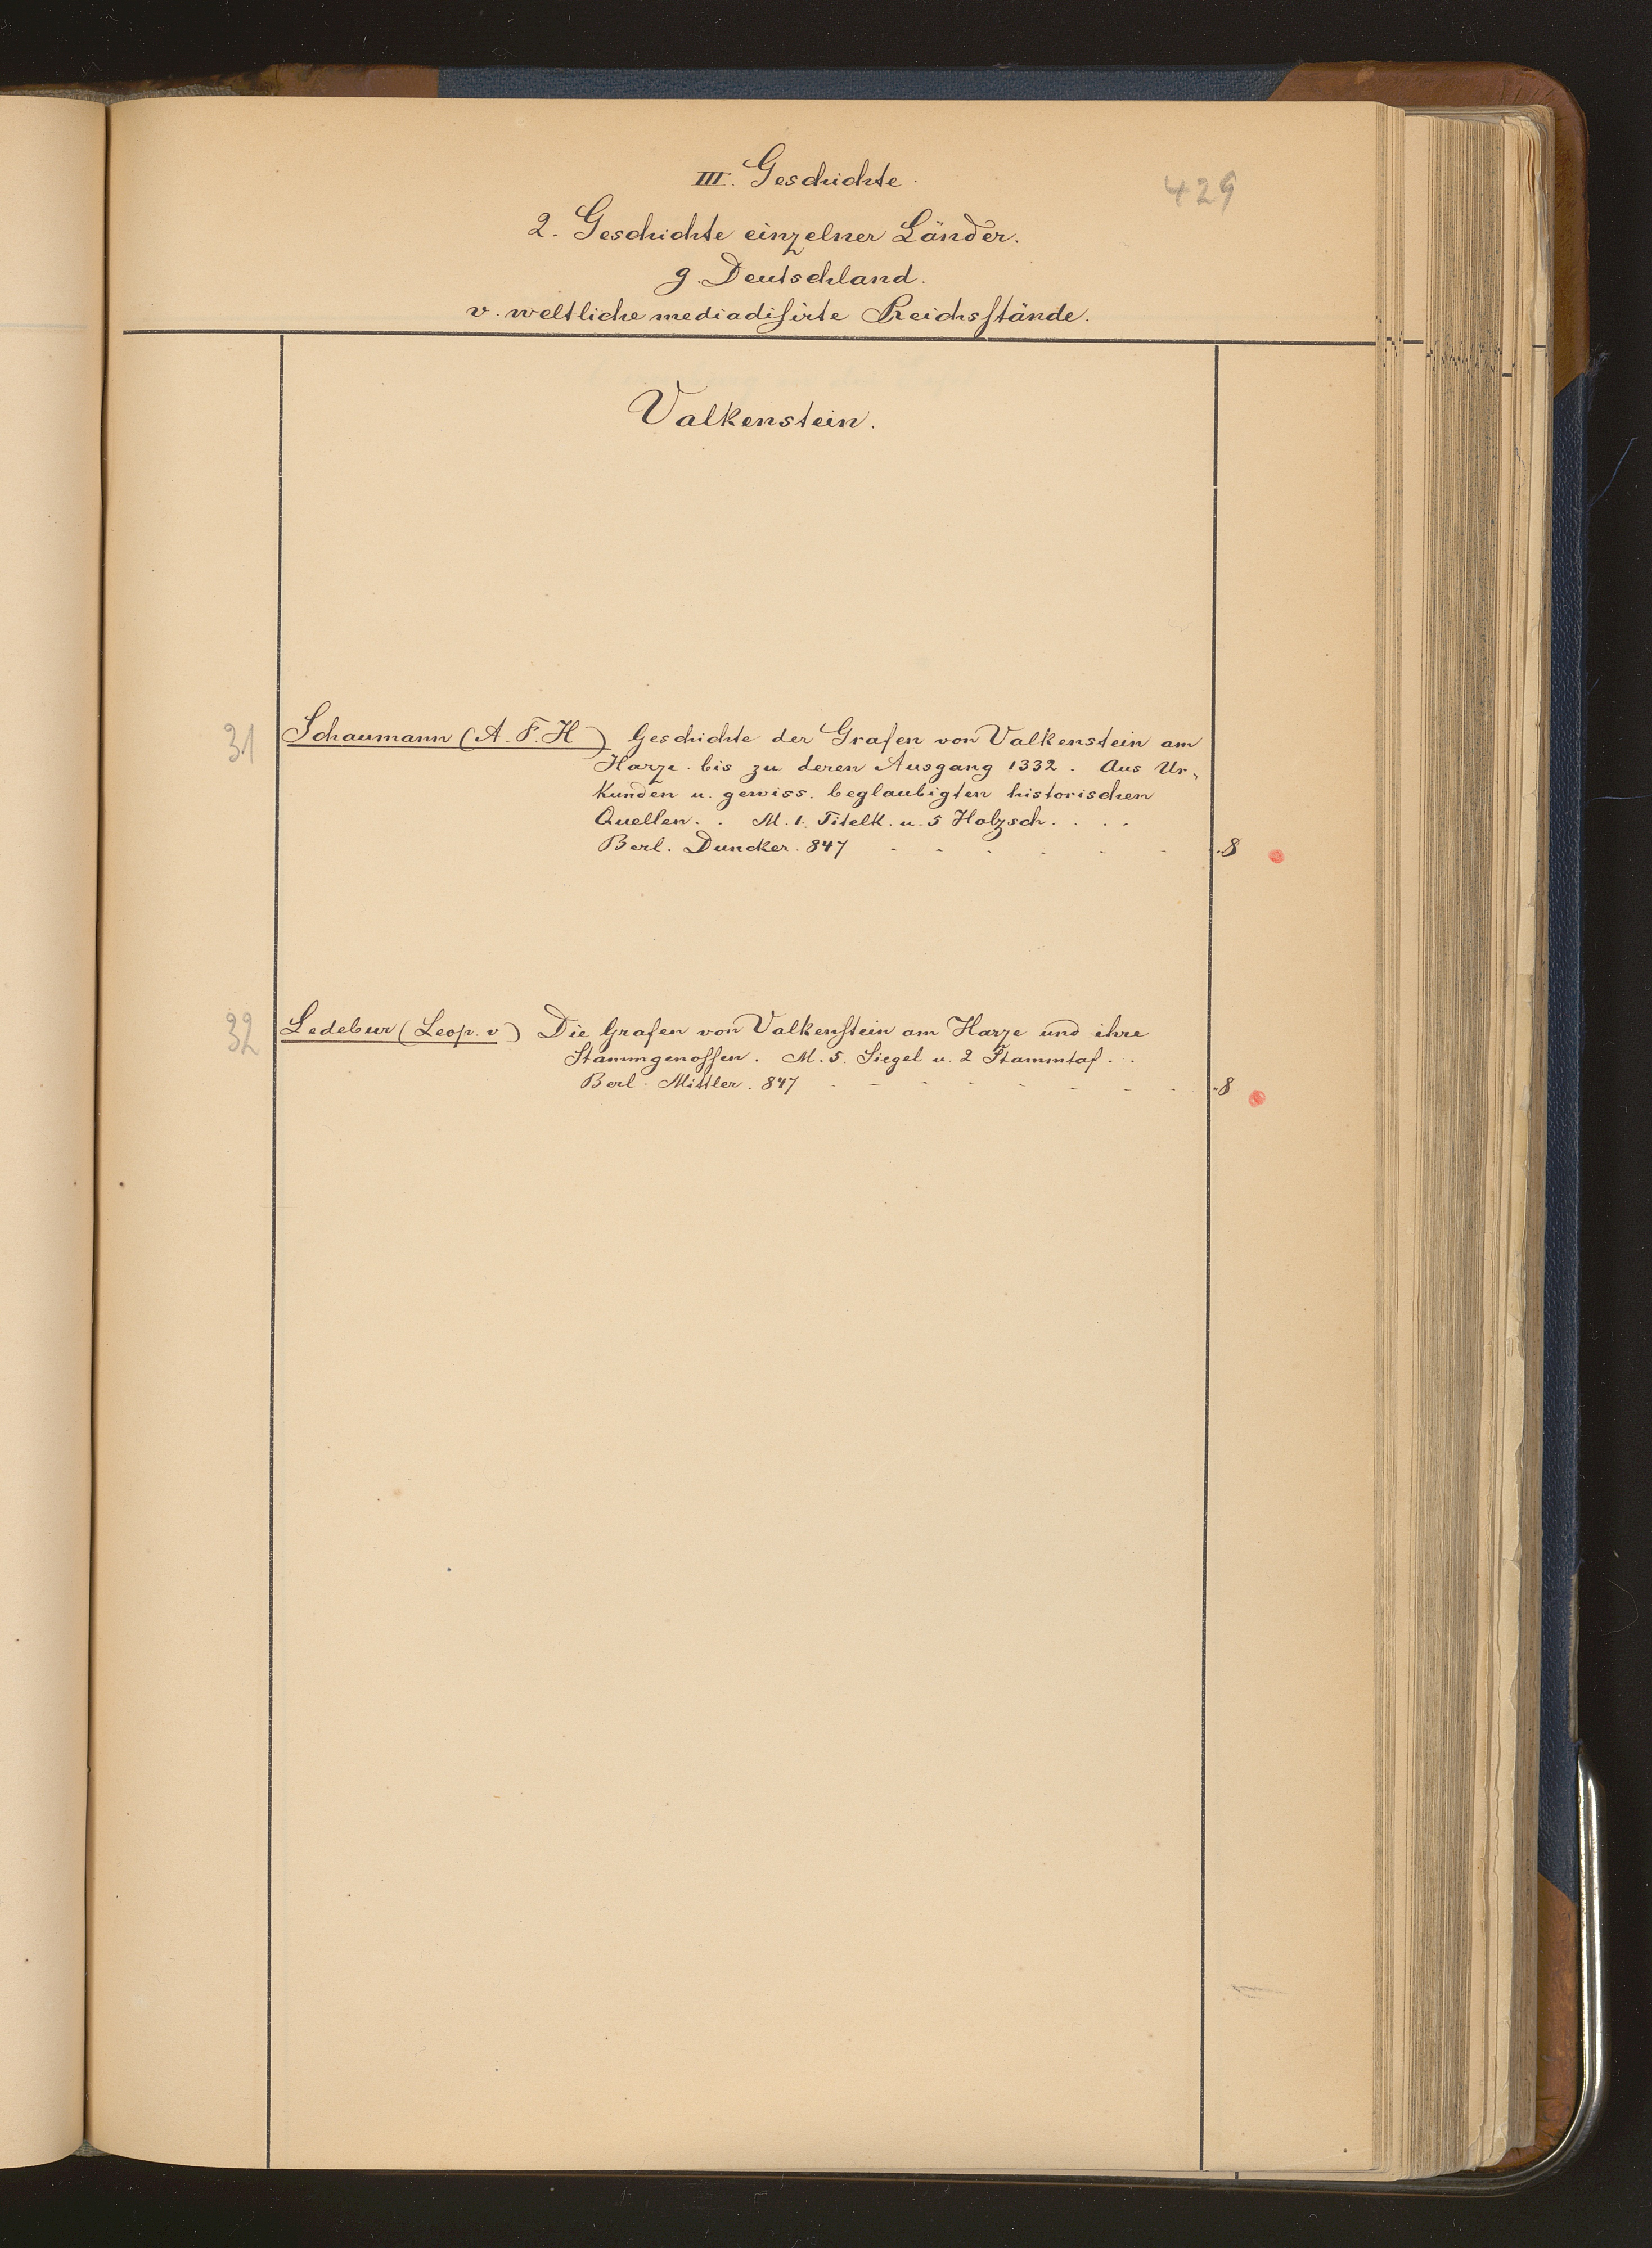 III. Geschichte.
429
2. Geschichte einzelner Länder.
g. Deutschland.
v. weltliche mediadisirte Reichsstände.
Valkenstein.
31 Schaumann (A. F. H) Geschichte der Grafen von Valkenstein am
Harze. bis zu deren Ausgang 1332. Aus Ur-
kunden u. gewiss. beglaubigten historischen
Quellen. . M. 1. Titelk. u. 5 Holzsch. . . .
Berl. Duncker. 847 - - - - - - - 8
32 Ledebur (Leop. v) Die Grafen von Valkenstein am Harze und ihre
Stammgenossen. M. 5. Siegel u. 2 Stammtaf. . .
Berl. Mittler. 847 - - - - - - - - 8